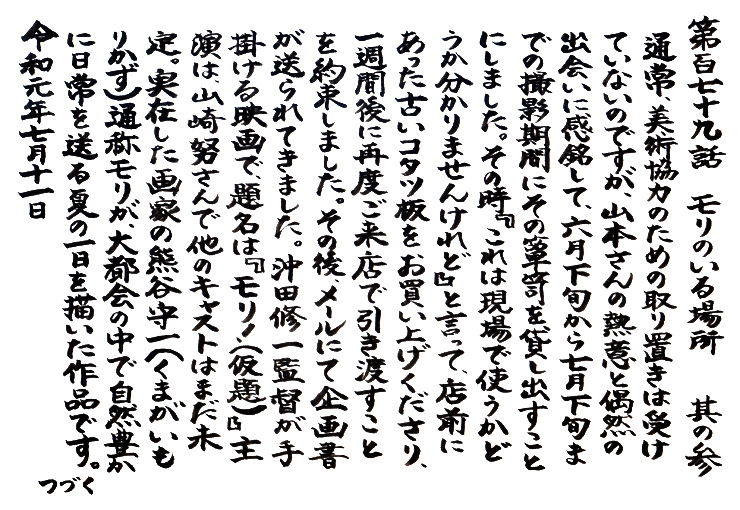 第百七十九話　モリのいる場所　其の参
通常、美術協力のための取り置きは受け
ていないのですが、山本さんの熱意と偶然の
出会いに感銘して、六月下旬から七月下旬ま
での撮影期間にその箪笥を貸し出すこと
にしました。その時『これは現場で使うかど
うか分かりませんけれど』と言って、店前に
あった古いコタツ板をお買い上げくださり、
一週間後に再度ご来店で引き渡すこと
を約束しました。その後、メールにて企画書
が送られてきました。沖田修一監督が手
掛ける映画で、題名は『モリノ（仮題）』主
演は、山崎努さんで他のキャストはまだ未
定。実在した画家の熊谷守一（くまがいも
りかず）通称モリが、大都会の中で自然豊か
に日常を送る夏の一日を描いた作品です。
令和元年七月十一日
つづく